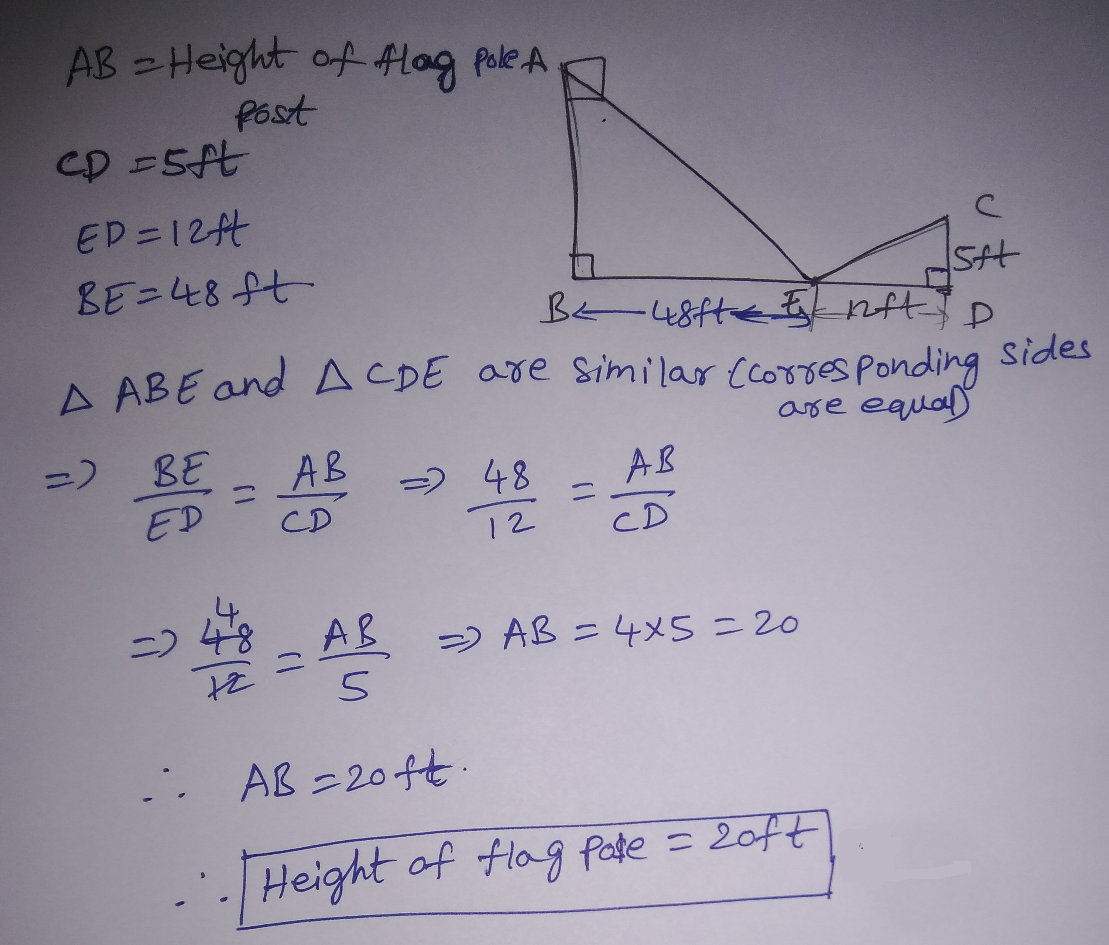 AB = Height of flag pole A
post
CD = 5ft
ED = 12ft
BE = 48 ft
C
5ft
B ← 48ft E 12ft → D
Δ ABE and Δ CDE are similar (corresponding sides
are equal)
=> BE/ED = AB/CD => 48/12 = AB/CD
=> 4 48/12 = AB/5 => AB = 4×5 = 20
∴ AB = 20ft.
∴ Height of flag pole = 20ft